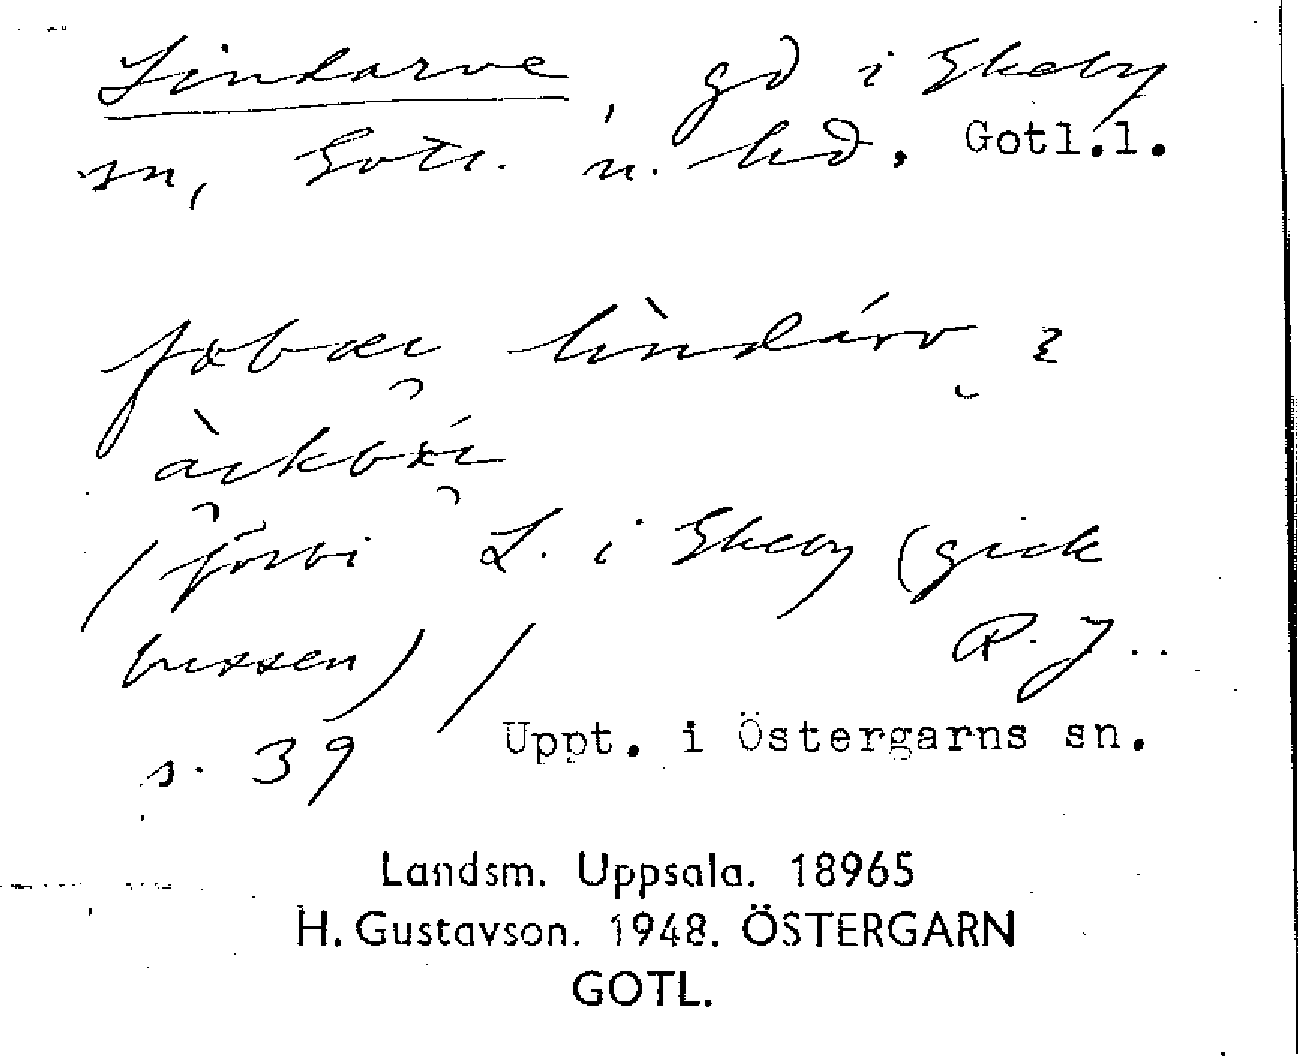 Lindarve, gd i Ekeby
sn, Gotl. n. hd, Gotl.l.
lìndárv
/förbi L. i Ekeby (gick
bussen)/ R. J..
s. 39 Uppt. i Östergarns sn.
Landsm. Uppsala. 18965
H. Gustavson. 1948. ÖSTERGARN
GOTL.